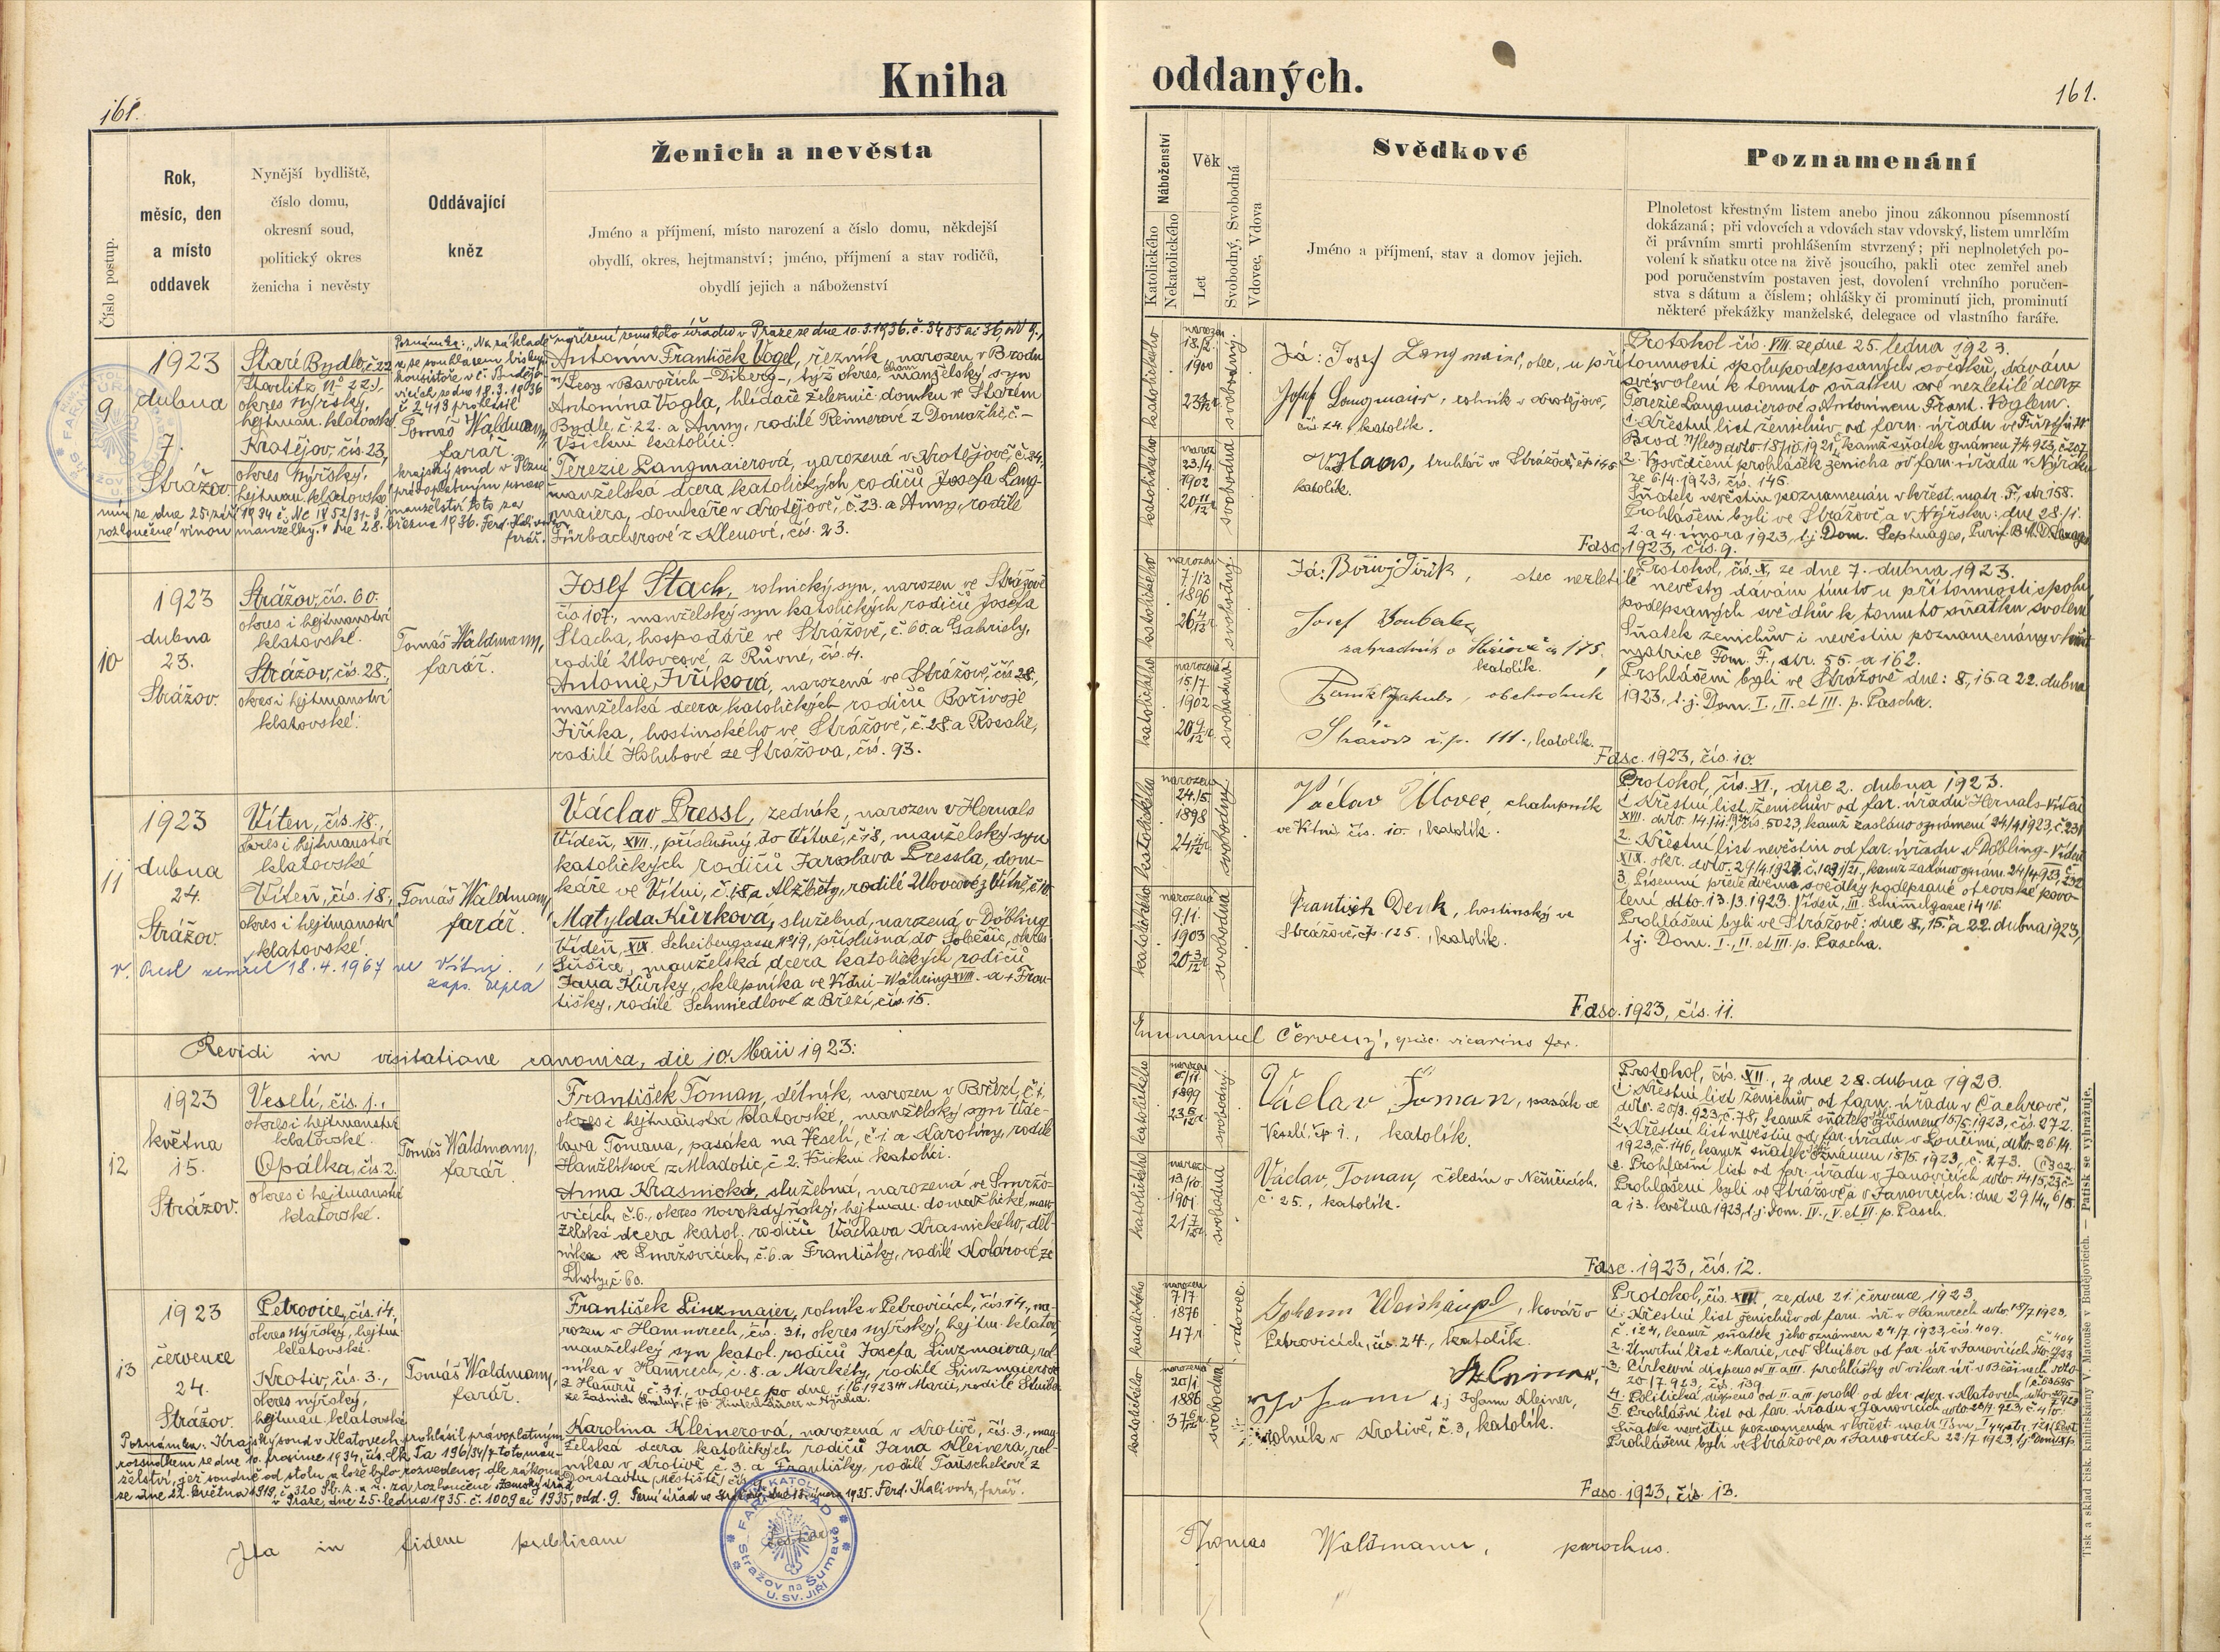 161.
Kniha
Číslo postup.
Rok,
měsíc, den
a místo
oddavek
Nynější bydliště,
číslo domu,
okresní soud,
politický okres
ženicha i nevěsty
Oddávající
kněz
Ženich a nevěsta
Jméno a příjmení, místo narození a číslo domu, někdejší
obydlí, okres, hejtmanství; jméno, příjmení a stav rodičů,
obydlí jejich a náboženství
9
1923
dubna
7.
Strážov
Staré Bydlo, č. 22
okres Nýrský,
hejtman. klatovské
Krotějov, čís. 23,
okres Nýrský,
hejtman. klatovské
Poznámka: „Na základě nařízení zemského úřadu v Praze ze dne 10.3.1936. č. 3455
Tomáš Waldmann,
farář
krajský soud v Plzni
rozloučené vinou manželky." Dne 28. března 1936. Ferd. Kalivoda,
farář.
Antonín František Vogel, řezník, narozen v Brodu
n/Lesy v Bavořích
Antonína Vogla, hlídače železnič. domku ve Starém
Bydle, č. 22. a Anny, rodilé Reimerové z Domažlic, č. –
Všichni katolíci.
Terezie Langmaierová, narozená v Krotějově, č. 24,
manželská dcera katolických rodičů Josefa Lang-
maiera, domkáře v Krotějově, č. 23. a Anny, rodilé
Fürbacherové z Klenové, čís. 23.
10
1923
dubna
23.
Strážov.
Strážov, čís. 60.
okres i hejtmanství
klatovské.
Strážov, čís. 28.,
okres i hejtmanství
klatovské.
Tomáš Waldmann,
farář.
Josef Stach, rolnický syn, narozen ve Strážově
čís. 107., manželský syn katolických rodičů Josefa
Stacha, hospodáře ve Strážově, č. 60. a Gabriely,
rodilé Ulovcové, z Růvné, čís. 4.
Antonie Jiříková, narozená ve Strážově, čís. 28.,
manželská dcera katolických rodičů Bořivoje
Jiříka, hostinského ve Strážově, č. 28. a Rosalie,
rodilé Holubové ze Strážova, čís. 93.
11
1923
dubna
24.
Strážov.
Víteň, čís. 18.,
okres i hejtmanství
klatovské
Víteň, čís. 18.,
okres i hejtmanství
klatovské.
Tomáš Waldmann,
farář.
zemřel 18. 4. 1967 ve Vítni.
Václav Pressl, zedník, narozen v Hernals
Vídeň, XVII., příslušný do Vítně, č. 18, manželský syn
katolických rodičů Jaroslava Pressla, dom-
káře ve Vítni, č. 18. a Alžběty, rodilé Ulovcové z Vítně, č. 10
Matylda Kůrková, služebná, narozená v Döbling
Vídeň, XIX. Scheibengasse No 19, příslušná do Soběšic, okres
Sušice, manželská dcera katolických rodičů
Jana Kůrky, sklepníka ve Vídni-Währing XVIII. a + Fran-
tišky, rodilé Schmiedlové z Březí, čís. 15.
Revidi in visitatione canonica, die 10. Maii 1923:
12
1923
května
15.
Strážov.
Veselí, čís. 1.,
okres i hejtmanství
klatovské.
Opálka, čís. 2.
okres i hejtmanství
klatovské.
Tomáš Waldmann,
farář.
František Toman, dělník, narozen v Březí, č. 1,
okres i hejtmanství klatovské, manželský syn Vác-
lava Tomana, pasáka na Veselí, č. 1. a Karoliny, rodilé
Hanžlíkové z Mladotic, č. 2. Všickni katolíci.
Anna Krasnická, služebná, narozená ve Smržo-
vicích, č. 6., okres novokdyňský, hejtman. domažlické, man-
želská dcera katol. rodičů Václava Krasnického, děl-
níka ve Smržovicích, č. 6. a Františky, rodilé Kolárové ze
Lhoty, č. 60.
13
1923
července
24.
Strážov.
Petrovice, čís. 14,
okres Nýrský, hejtm.
klatovské.
Krotiv, čís. 3.,
okres nýrský,
hejtman. klatovské
Tomáš Waldmann,
farář.
František Linzmajer, rolník v Petrovicích, čís. 14., na-
rozen v Hamrech, čís. 31, okres nýrský, hejtm. klatov.,
manželský syn katol. rodičů Josefa Linzmaiera, rol-
níka v Hamrech, č. 8. a Markéty, rodilé Linzmaierové
z Hamrů, č. 31., vdovec po dne 1923 Marii, rodilé
Karolina Kleinerová, narozená v Krotivě, čís. 3, man-
želská dcera katolických rodičů Jana Kleinera, rol-
níka v Krotivě, č. 3. a Františky, rodilé Tauschekové z
Poznámka: Krajský soud v Klatovech prohlásil právoplatným
rozsudkem ze dne 10. prosince 1934, čís. Ck Ia 196/34/7 toto man-
želství, jež soudně od stolu a lože bylo rozvedeno, dle zákona
ze dne 22. května 1919, č. 320 Sb. z. a n. za rozloučené. Zemský úřad
v Praze, dne 25. ledna 1935. č. 1009 ai 1935, odd. 9. Farní úřad ve Strážově, dne 18. února 1935. Ferd. Kalivoda, farář.
Ita in fidem publicam
FARNÍ ÚŘAD
Strážov na Šumavě
U SV. JIŘÍ
oddaných.
161.
Náboženství
Katolického
Nekatolického
Věk
Let
Svobodný, Svobodná
Vdovec, Vdova
Svědkové
Jméno a příjmení, stav a domov jejich.
Poznamenání
Plnoletost křestným listem anebo jinou zákonnou písemností
dokázaná; při vdovcích a vdovách stav vdovský, listem umrlčím
či právním smrti prohlášením stvrzený; při neplnoletých po-
volení k sňatku otce na živě jsoucího, pakli otec zemřel aneb
pod poručenstvím postaven jest, dovolení vrchního poručen-
stva s dátum a číslem; ohlášky či prominutí jich, prominutí
některé překážky manželské, delegace od vlastního faráře.
katolického
narozen
18/2.
1900
svobodný
katolického
naroz.
23/4.
1902
20 11/12
svobodná
Já: Josef Langmaier, otec, u přítomnosti spolupodepsaných svědků, dávám
Josef Langmaier, rolník v Krotějově,
čís. 24., katolík.
V. Haas, truhlář ve Strážově, čp. 145
katolík.
Protokol čís. VIII. ze dne 25. ledna 1923.
svovolení k tomuto sňatku své nezletilé dcery
Terezie Langmaierové s Antonínem Frant. Voglem.
2. Vysvědčení prohlášek ženicha od far. úřadu v Nýrsku
ze 6/4. 1923, čís. 145.
Sňatek nevěstin poznamenán v křest. matr. F, str. 158.
Prohlášeni byli ve Strážově a v Nýrsku: dne 28./1.
2. a 4. února 1923, t.j. Dom. Septuages., Purif. B.M.
Fasc. 1923, čís. 9.
katolického
narozen
7./12
1896
26 4/12
svobodný
katolického
narozená
15/7.
1902
20 9/12 r.
svobodná
Já: Bořivoj Jiřík, otec nezletilé nevěsty dávám tímto u přítomnosti spolu
Josef Boubal
zahradník v Strážově č. 175
katolík.
Jakub, obchodník
Strážov č.p. 111., katolík.
Protokol, čís. X, ze dne 7. dubna 1923.
podepsaných svědků k tomuto sňatku svolení
Sňatek ženichův i nevěstin poznamenány v křest.
matrice Tom. F., str. 55. a 162.
Prohlášeni byli ve Strážově dne: 8., 15. a 22. dubna
1923, t.j. Dom. I., II. et III. p. Pascha.
Fasc. 1923, čís. 10.
katolického
narozen
24./5.
1898
24 11/12 r.
svobodný
katolického
narozená
9./1.
1903
20 3/12 r.
svobodná
Václav Ulovec, chalupník
ve Vítni čís. 10., katolík.
František Denk, hostinský ve
Strážově, čp. 125., katolík.
Protokol, čís. XI., dne 2. dubna 1923.
1. Křestní list ženichův od far. úřadu Hernals-Vídeň
2. Křestní list nevěstin od far. úřadu v Döbling-Vídeň
3. Písemní přede dvěma svědky podepsané otcovské povo-
lení ddto. 13./3. 1923. Vídeň, III.
Prohlášeni byli ve Strážově: dne 8., 15. a 22. dubna 1923,
t.j. Dom. I., II. et III. p. Pascha.
Fasc. 1923, čís. 11.
Emmanuel Červený, episc. vicarius for.
katolického
narozen
1899
23 5/12 r.
svobodný
katolického
naroz.
13/10.
1901
21 7/12 r.
svobodná
Václav Toman, pasák ve
Veselí, čp. 1., katolík.
Václav Toman, čeledín v Němčicích,
č. 25., katolík.
Protokol, čís. XII., z dne 28. dubna 1923.
1. Křestní list ženichův od farn. úřadu v Čachrově,
ddto. 20/3. 923, č. 78, kamž sňatek oznámen 15/5. 1923, čís. 272.
2. Křestní list nevěstin od far. úřadu v Loučimi, ddto. 26/4.
1923, č. 146, kamž sňatek oznámen 15/5 1923, č. 273.
Prohlášeni byli ve Strážově a v Janovicích: dne 29/4., 6/5.
a 13. května 1923, t.j. Dom. IV., V. et VI. p. Pasch.
Fasc. 1923, čís. 12.
katolického
narozen
7/7
1876
47 r.
vdovec.
katolického
narozená
20/1
1886
37 6/12 r.
svobodná
Johann Weishäupl, kovář v
Petrovicích, čís. 24., katolík.
Johann Kleiner,
t.j. Johann Kleiner,
rolník v Krotivě, č. 3, katolík.
Protokol, čís. XIII. ze dne 21. července 1923
1. Křestní list ženichův od farn. úř. v Hamrech ddto. 18/7 1923.
č. 124, kamž sňatek jeho oznámen 24/7. 1923, čís. 409.
3. Církevní dispens od II. a III. prohlášky
20/7 923, čís. 139
Fasc. 1923, čís. 13.
Thomas Waldmann, parochus.
Tisk a sklad čísk. knihtiskárny V. Matouše v Budějovicích. — Patisk se vyhražuje.